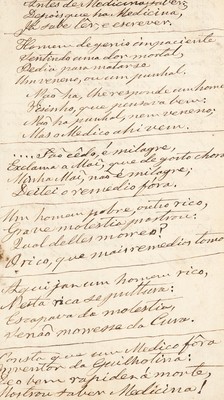 Antes de Medicina saber,
Depois que ha Medicina,
Já sabe ler, e escrever.
Homem de genio impaciente,
Vendo uma dor mortal,
Pedia para matar-se
Um veneno, ou um punhal.
Não ha, lhe responde um home
Visinho, que pensava bem:
Não ha punhal, nem veneno;
Mas o Medico ahi vem.
....São cêdo, é milagre,
Exclama a Mai, que de gosto chora
Minha Mai, não é milagre;
Deitei o remedio fóra.
Um homem pobre, outro rico,
Grave molestia prostrou:
Qual delles morreo?
O rico, que mais remedios tomo
Aqui jaz um homem rico,
Nesta rica sepultura:
Escapava da molestia,
Se não morresse da Cura.
Consta que um Medico fôra
Inventor da Guilhotina:
bem rapida é a morte,
Mostrou saber Medicina!